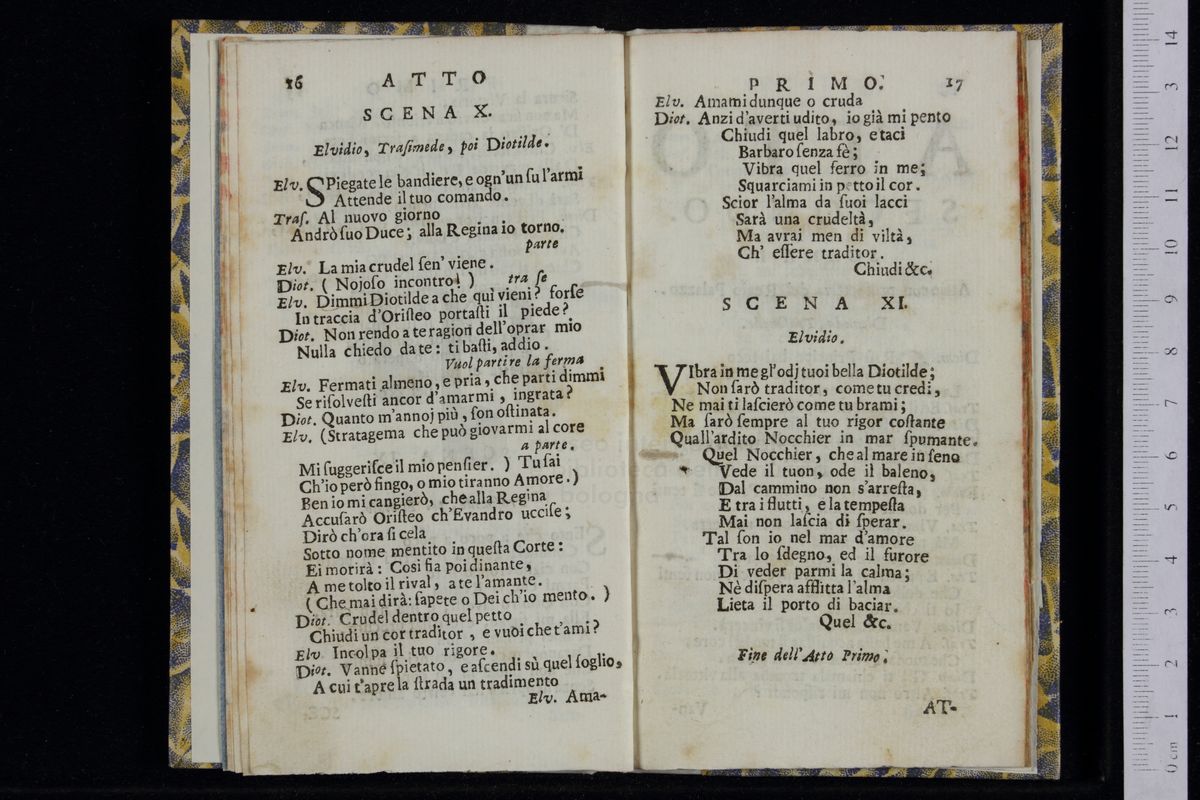 16 ATTO
SCENA X.
Elvidio, Traſimede, poi Diotilde.
Elv. SPiegate le bandiere, e ogn'un ſu l'armi
Attende il tuo comando.
Traſ. Al nuovo giorno
Andrò ſuo Duce; alla Regina io torno.
parte
Elv. La mia crudel ſen' viene.
Diot. ( Nojoſo incontro! ) tra ſe
Elv. Dimmi Diotilde a che quì vieni? forſe
In traccia d'Oriſteo portaſti il piede?
Diot. Non rendo a te ragion dell'oprar mio
Nulla chiedo da te: ti baſti, addio.
Vuol partire la ferma
Elv. Fermati almeno, e pria, che parti dimmi
Se riſolveſti ancor d'amarmi, ingrata?
Diot. Quanto m'annoj più, ſon oſtinata.
Elv. (Stratagema che può giovarmi al core
a parte.
Mi ſuggeriſce il mio penſier. ) Tu ſai
Ch'io però fingo, o mio tiranno Amore.)
Ben io mi cangierò, che alla Regina
Accuſarò Oriſteo ch'Evandro ucciſe;
Dirò ch'ora ſi cela
Sotto nome mentito in queſta Corte:
Ei morirà: Così fia poi dinante,
A me tolto il rival, a te l'amante.
( Che mai dirà: ſapete o Dei ch'io mento. )
Diot. Crudel dentro quel petto
Chiudi un cor traditor, e vuoi che t'ami?
Elv Incolpa il tuo rigore.
Diot. Vanne ſpietato, e aſcendi sù quel ſoglio,
A cui t'apre la ſtrada un tradimento
Elv. Ama-
PRIMO. 17
Elv. Amami dunque o cruda
Diot. Anzi d'averti udito, io già mi pento
Chiudi quel labro, e taci
Barbaro ſenza fè;
Vibra quel ferro in me;
Squarciami in petto il cor.
Scior l'alma da ſuoi lacci
Sarà una crudeltà,
Ma avrai men di viltà,
Ch' eſſere traditor.
Chiudi &c.
SCENA XI.
Elvidio.
VIbra in me gl'odj tuoi bella Diotilde;
Non ſarò traditor, come tu credi,
Ne mai ti laſcierò come tu brami;
Ma ſarò ſempre al tuo rigor coſtante
Quall'ardito Nocchier in mar ſpumante.
Quel Nocchier, che al mare in ſeno
Vede il tuon, ode il baleno,
Dal cammino non s'arreſta,
E tra i flutti, e la tempeſta
Mai non laſcia di ſperar.
Tal ſon io nel mar d'amore
Tra lo ſdegno, ed il furore
Di veder parmi la calma;
Nè diſpera afflitta l'alma
Lieta il porto di baciar.
Quel &c.
Fine dell'Atto Primo.
AT-